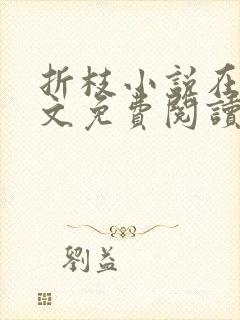 折枝小说在
文免費閱讀
劉益